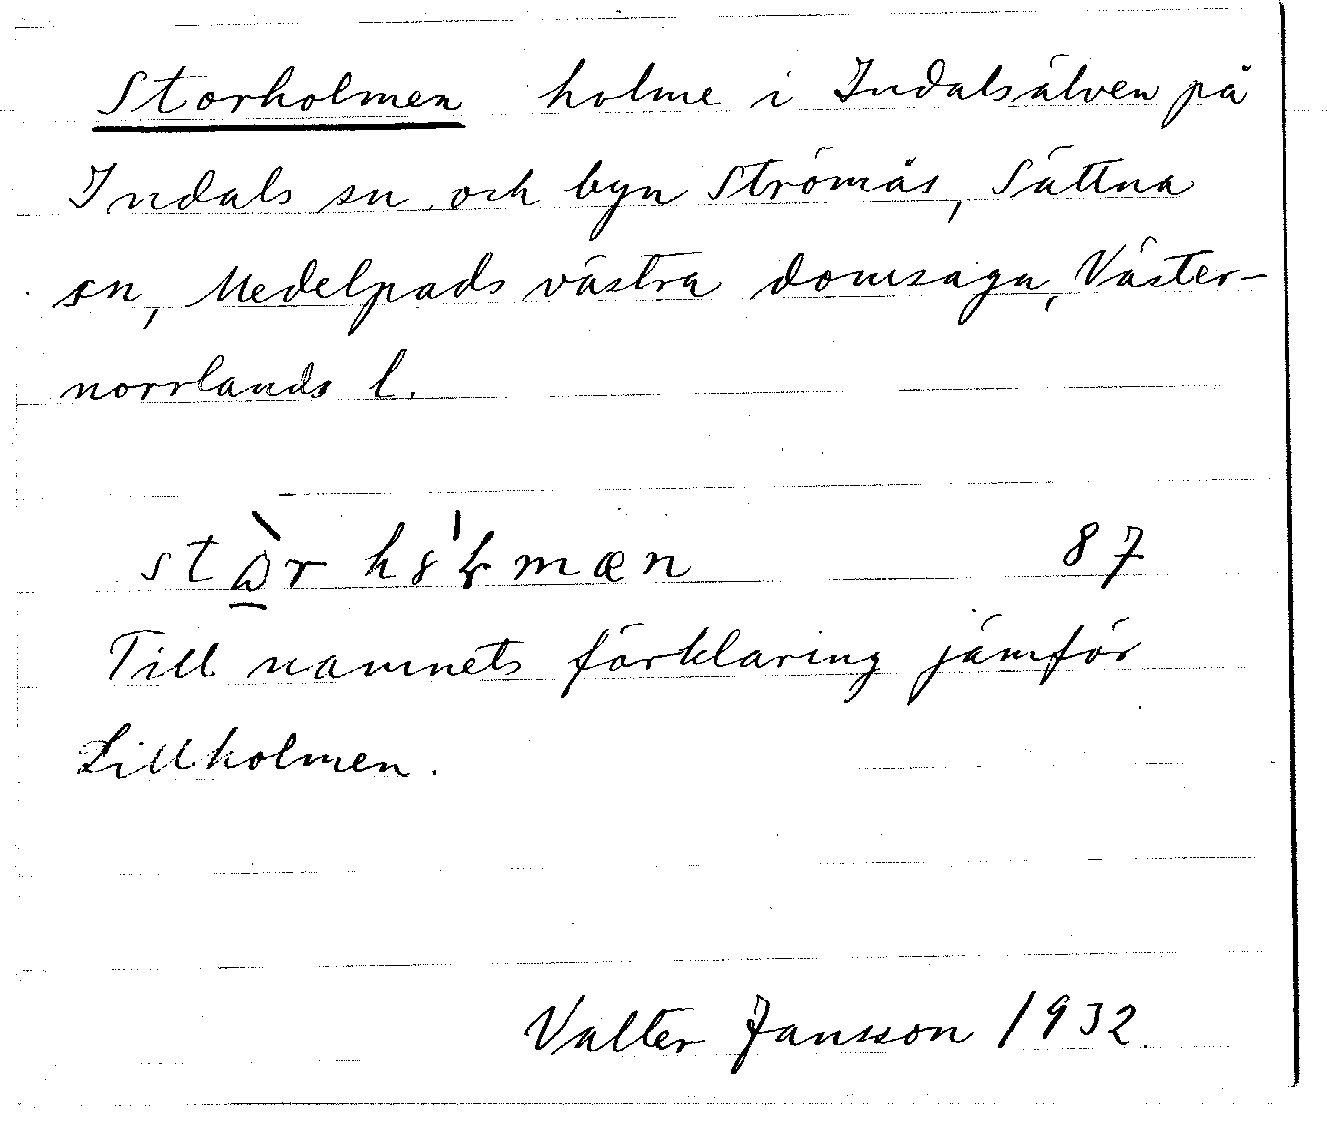 Storholmen holme i Indalsälven på
Indals sn och byn Strömås, Sättna
sn, Medelpads västra domsaga, Väster-
norrlands l.
87
Till namnets förklaring jämför
Lillholmen.
Valter Jansson 1932.